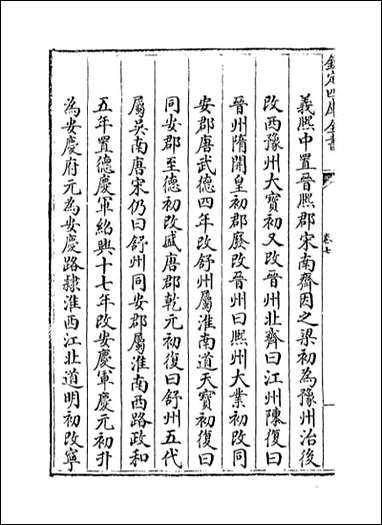 欽定四庫全書
卷七
義熙中置晉熙郡宋南齊因之梁初為豫州治後
改西豫州大寳初又改晉州北齊曰江州陳復曰
晉州隋開皇初郡廢改晉州曰熙州大業初改同
安郡唐武德四年改舒州屬淮南道天寳初復曰
同安郡至德初改盛唐郡乾元初復曰舒州五代
屬吳南唐宋仍曰舒州同安郡屬淮南西路政和
五年置德慶軍紹興十七年改安慶軍慶元初升
為安慶府元為安慶路隷淮西江北道明初改寧